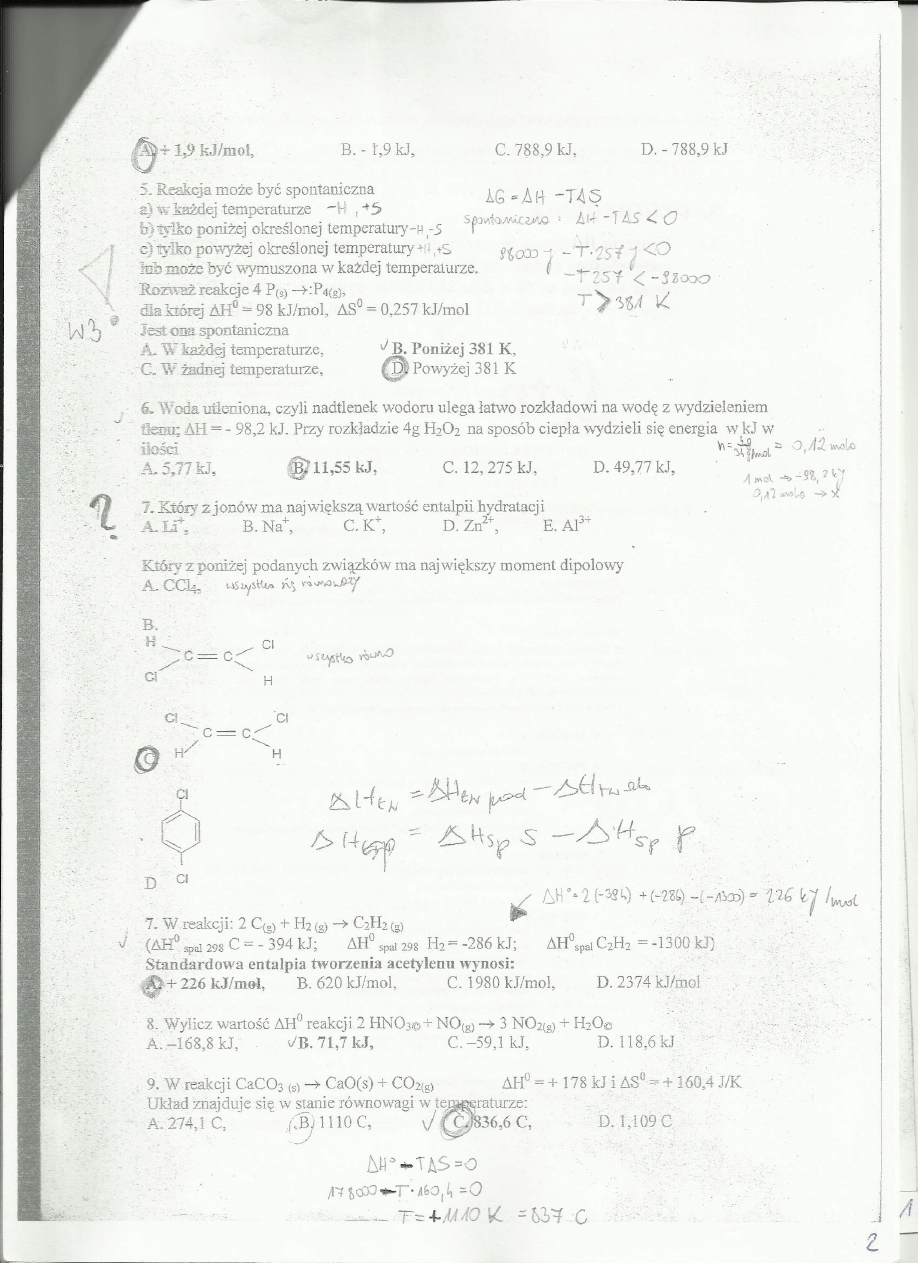 A. + 1,9 kJ/mol, B. - 1,9 kJ, C. 788,9 kJ, D. - 788,9 kJ
5. Reakcja może być spontaniczna ΔG = ΔH - TΔS
a) w każdej temperaturze -H , +S
spontaniczna : ΔH - TΔS < 0
b) tylko poniżej określonej temperatury -H, -S
c) tylko powyżej określonej temperatury +H, +S 98000 J - T·257 J < 0
lub może być wymuszona w każdej temperaturze.
-T 257 < -98000
Rozważ reakcje 4 P(s) →:P4(g),
T > 381 K
dla której ΔH⁰ = 98 kJ/mol, ΔS⁰ = 0,257 kJ/mol
W3
Jest ona spontaniczna
A. W każdej temperaturze, √ B. Poniżej 381 K,
C. W żadnej temperaturze, D. Powyżej 381 K
6. Woda utleniona, czyli nadtlenek wodoru ulega łatwo rozkładowi na wodę z wydzieleniem
tlenu; ΔH = - 98,2 kJ. Przy rozkładzie 4g H2O2 na sposób ciepła wydzieli się energia w kJ w
ilości
= 0,12 mola
A. 5,77 kJ, B. 11,55 kJ, C. 12, 275 kJ, D. 49,77 kJ,
1 mol → -98,2 kJ
0,12 mola → x
?
7. Który z jonów ma największą wartość entalpii hydratacji
A. Li⁺, B. Na⁺, C. K⁺, D. Zn²⁺, E. Al³⁺
Który z poniżej podanych związków ma największy moment dipolowy
A. CCl4, wszystko się równoważy
B.
H Cl
C = C wszystko równo
Cl H
Cl Cl
C = C
C H H
Cl
D Cl
ΔH° = 2 (-394) + (-286) - (-1300) = 226 kJ/mol
7. W reakcji: 2 C(g) + H2 (g) → C2H2 (g)
√ (ΔH⁰ spal 298 C = - 394 kJ; ΔH⁰ spal 298 H2 = -286 kJ; ΔH⁰spal C2H2 = -1300 kJ)
Standardowa entalpia tworzenia acetylenu wynosi:
A. + 226 kJ/mol, B. 620 kJ/mol, C. 1980 kJ/mol, D. 2374 kJ/mol
8. Wylicz wartość ΔH⁰ reakcji 2 HNO3© + NO(g) → 3 NO2(g) + H2O©
A. –168,8 kJ, √ B. 71,7 kJ, C. –59,1 kJ, D. 118,6 kJ
9. W reakcji CaCO3 (s) → CaO(s) + CO2(g) ΔH⁰ = + 178 kJ i ΔS⁰ = + 160,4 J/K
Układ znajduje się w stanie równowagi w temperaturze:
A. 274,1 C, B. 1110 C, √ C. 836,6 C, D. 1,109 C
ΔH° - TΔS = 0
178000 - T·160,4 = 0
T = +1110 K = 837 C
1
2